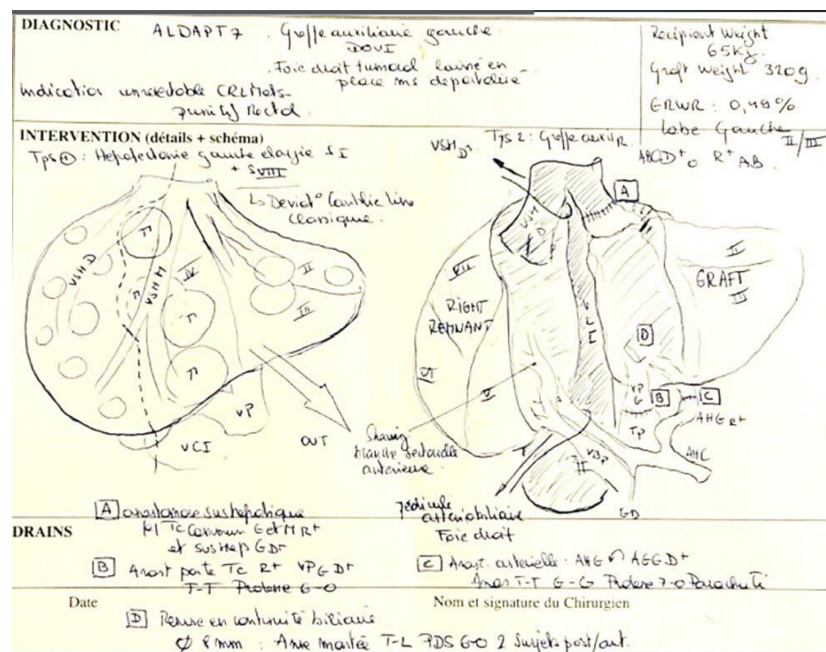 DIAGNOSTIC ALDAPT 7. Greffe auxiliaire gauche
Foie droit tumoral laissé en
place ms deportalisé
Indication unresectable CRLMets
Recipient Weight
65Kg
Graft Weight 320g
GRWR : 0,49%
Lobe Gauche II/III
ABO D+ O R+ AB
INTERVENTION (détails + schéma)
Tps ① : Hepatectomie gauche elargie SI
+ S VIII
↳ Classique.
Tps 2 : Greffe auxil
VSH D
A
VSH D
VSH M
IV
II
III
T
T
T
T
VP
VCI
OUT
VII
RIGHT
REMNANT
VI
V
GRAFT
II
III
D
VP
G
B
C
TP
AHG R+
AHC
VBP
GD
Shaving
branche sectorielle
anterieure
Pédicule
arteriobiliaire
Foie droit
A anastomose sushépatique
Tc Commun G et M R+
et sushep G D+
DRAINS
B Anast porte Tc R+ VPG D+
T-T Prolene 6-0
C Anast. arterielle : AHG AGG D+
Anas T-T G-G Prolene 7-0 Parachute
Date
Nom et signature du Chirurgien
D Remise en continuité biliaire
Ø 8 mm : Anse montée T-L PDS 6-0 2 surjets post/ant.